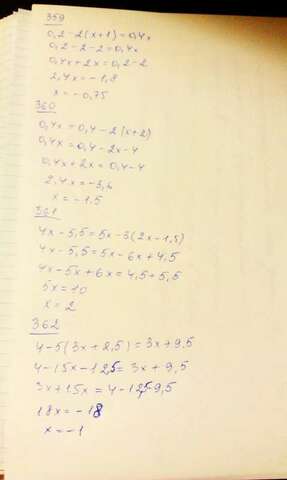 359
0,2-2(x+1)=0,4x
0,2-2-2=0,4x
0,4x+2x=0,2-2
2,4x=-1,8
x=-0,75
360
0,4x=0,4-2(x+2)
0,4x=0,4-2x-4
0,4x+2x=0,4-4
2,4x=-3,6
x=-1,5
361
4x-5,5=5x-3(2x-1,5)
4x-5,5=5x-6x+4,5
4x-5x+6x=4,5+5,5
5x=10
x=2
362
4-5(3x+2,5)=3x+9,5
4-15x-12,5=3x+9,5
3x+15x=4-12,5-9,5
18x=-18
x=-1